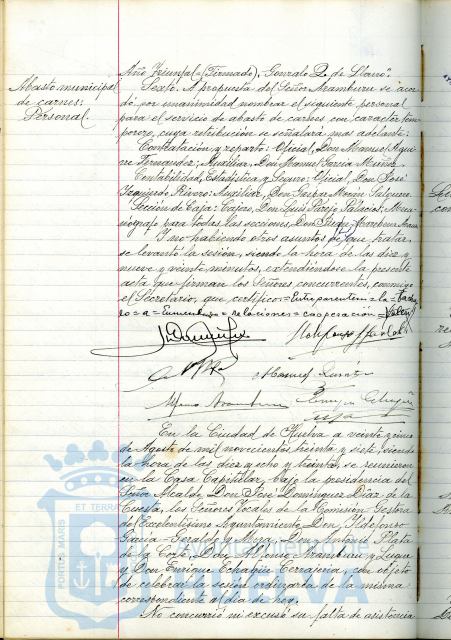 Año Triunfal=(Firmado), Gonzalo Q. de Llano".
Abasto municipal
de carnes:
Personal.
Sexto. A propuesta del Señor Aramburu se acor
dó por unanimidad nombrar el siguiente personal
para el servicio de abasto de carnes con caracter tem
porero, cuya retribución se señalará mas adelante:
Contratación y reparto: Oficial, Don Manuel Agui
rre Fernandez; Auxiliar, Don Manuel Garcia Muñoz
Contabilidad, Estadística y Seguro: Oficial, Don José
Izquierdo Rivero: Auxiliar, Don Gaspar Morón
Sección de Caja: Cajero, Don Luis Parejo Palacios; Meca
nógrafo para todas las secciones, Don Juan
Y no habiendo otros asuntos de que tratar
se levantó la sesión, siendo la hora de las diez y
nueve y veinte minutos, extendiéndose la presente
acta que firman los Señores concurrentes, conmigo
el Secretario, que certifico=Entreparentem=la=
ro=a=Enmendado=relaciones=cooperación=
En la Ciudad de Huelva a veinte y cinco
de Agosto de mil novecientos treinta y siete, siendo
la hora de las diez y ocho y treinta, se reunieron
en la Casa Capitular, bajo la presidencia del
Señor Alcalde, Don José Dominguez Diaz de la
Cuesta, los Señores Vocales de la Comisión Gestora
del Excelentísimo Ayuntamiento, Don Ildefonso
Garcia-Geraldo y Mora, Don Antonio Plata
de la Corte, Don Alfonso Aramburu y Luque
y Don Enrique Echagüe Cerrajeria, con objeto
de celebrar la sesión ordinaria de la misma
correspondiente al dia de hoy.
No concurrió ni excusó su falta de asistencia
ET TERRA
PORTUS MARIS